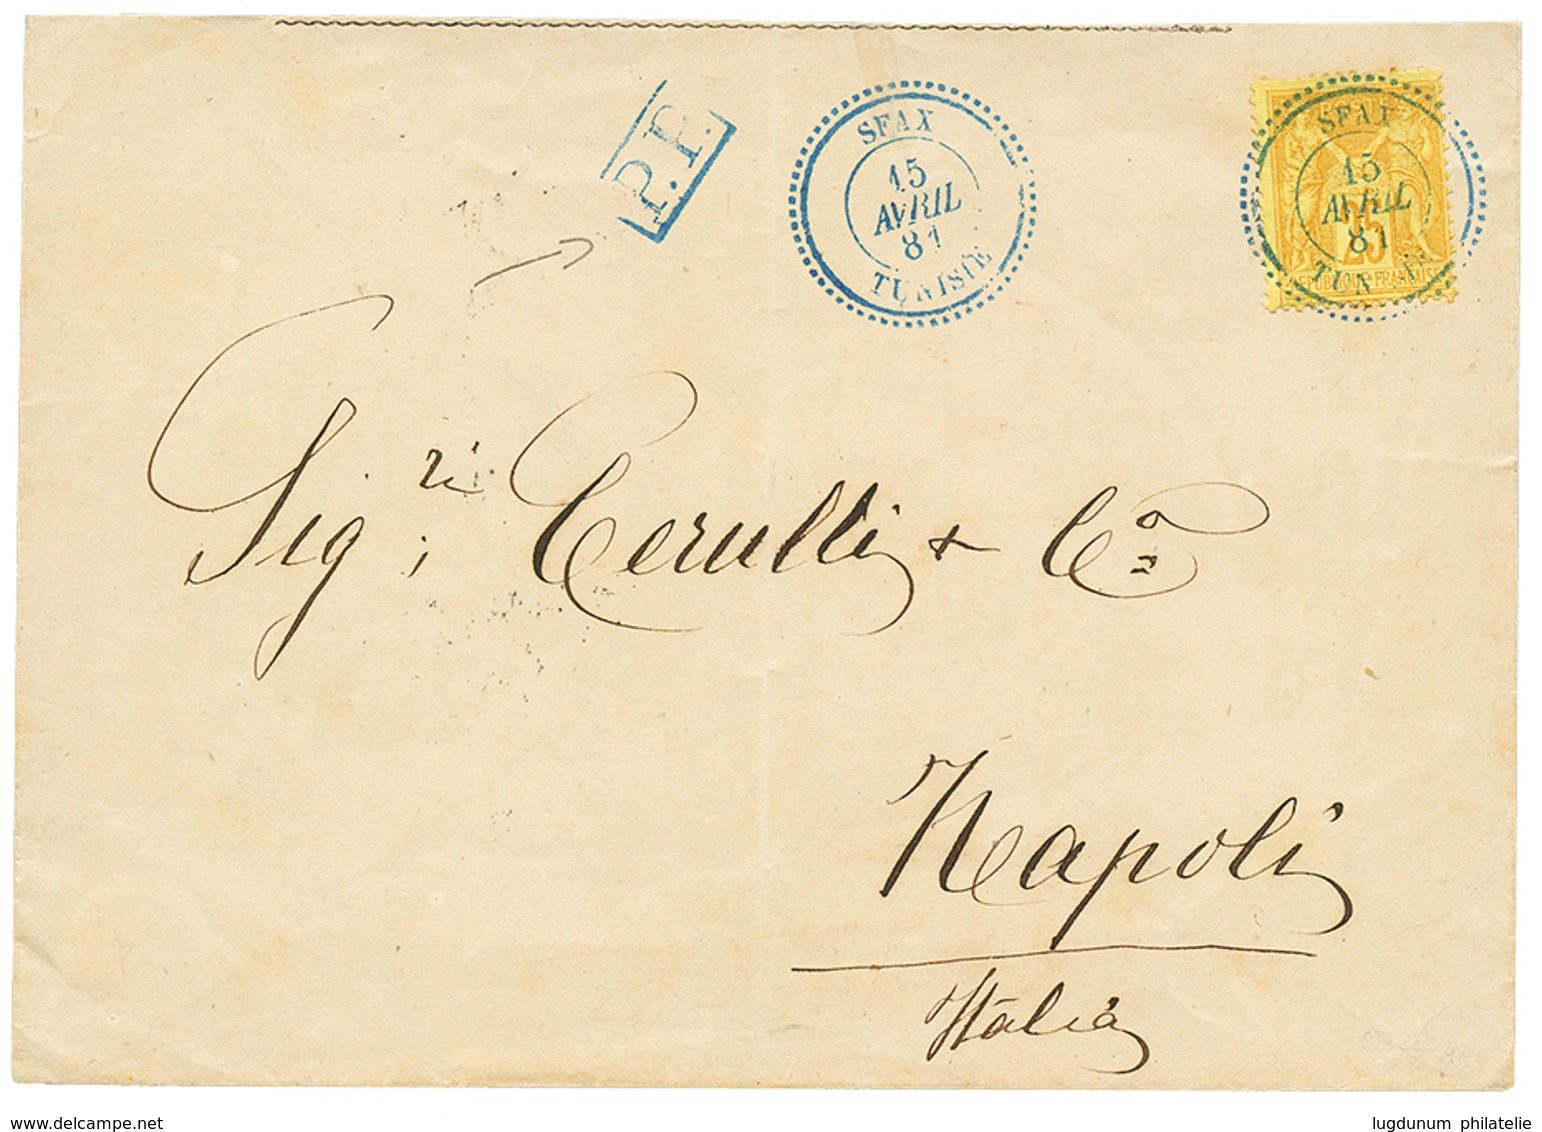 P.P.
SFAX
15
AVRIL
81
TUNISIE
SFAX
15
AVRIL
81
TUN IE
25
REPUBLIQUE FRANCAISE
Sig.ri Cerulli & Ca
Napoli
Italia
www.delcampe.net
lugdunum philatelie